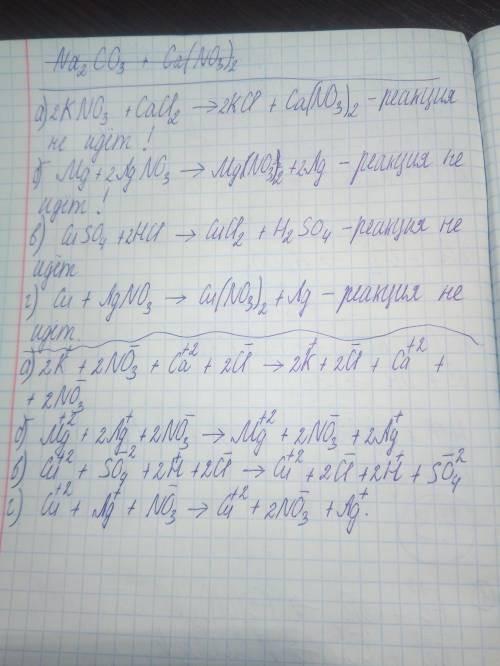 Na₂CO₃ + Ca(NO₃)₂
а) 2KNO₃ + CaCl₂ → 2KCl + Ca(NO₃)₂ – реакция
не идёт!
б) Mg + 2AgNO₃ → Mg(NO₃)₂ + 2Ag – реакция не
идет!
в) CuSO₄ + 2HCl → CuCl₂ + H₂SO₄ – реакция не
идёт
г) Cu + AgNO₃ → Cu(NO₃)₂ + Ag – реакция не
идет.
а) 2K⁺ + 2NO₃⁻ + Ca⁺² + 2Cl⁻ → 2K⁺ + 2Cl⁻ + Ca⁺² +
+ 2NO₃⁻
б) Mg⁺² + 2Ag⁺ + 2NO₃⁻ → Mg⁺² + 2NO₃⁻ + 2Ag⁺
в) Cu⁺² + SO₄⁻² + 2H⁺ + 2Cl⁻ → Cu⁺² + 2Cl⁻ + 2H⁺ + SO₄⁻²
г) Cu⁺² + Ag⁺ + NO₃⁻ → Cu⁺² + 2NO₃⁻ + Ag⁺.